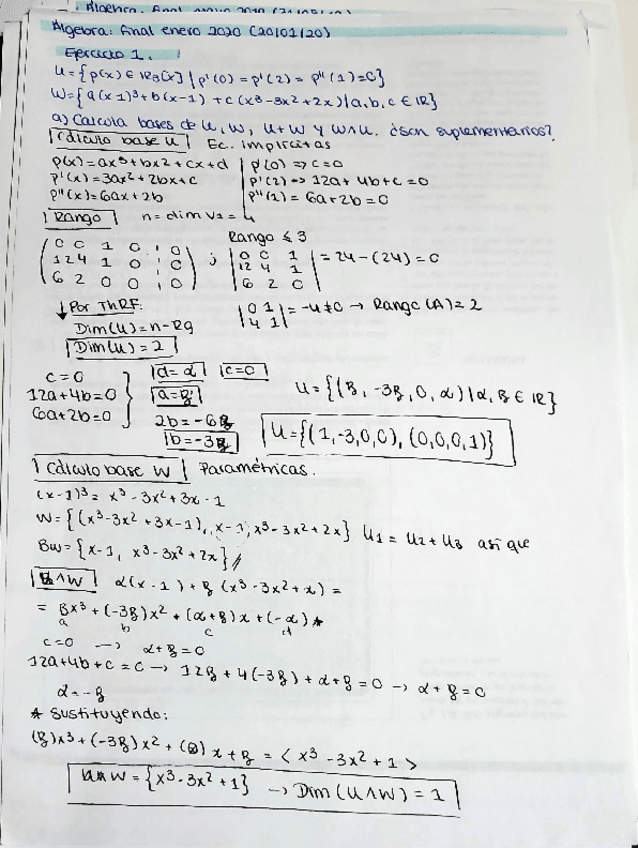 Álgebra: final enero 2020 (20/01/20)
Ejercicio 1.
U={p(x) ∈ IR3[x] | p'(0) = p'(2) = p''(1)=0}
W={a(x-1)³+b(x-1)+c(x³-3x²+2x)|a,b,c ∈ IR}
a) Calcula bases de U, W, U+W y W∩U. ¿Son suplementarios?
Cálculo base U Ec. implícitas
p(x)=ax³+bx²+cx+d p'(0) => c=0
p'(x)=3ax²+2bx+c p'(2)=> 12a+4b+c=0
p''(x)=6ax+2b p''(1)= 6a+2b=0
Rango n=dim V1=4
Rango ≤ 3
0 0 1 0 | 0 ; 0 0 1
12 4 1 0 | 0 12 4 1 = 24-(24)=0
6 2 0 0 | 0 6 2 0
↓ Por ThRF: |0 1| = -4≠0 → Rango(A)=2
Dim(U)=n-Rg |4 1|
Dim(U)=2
c=0 d=α c=0
12a+4b=0 a=β U={(β, -3β, 0, α)|α, β ∈ IR}
6a+2b=0 2b=-6β
b=-3β U={(1,-3,0,0), (0,0,0,1)}
Cálculo base W Paramétricas.
(x-1)³= x³-3x²+3x-1
W={(x³-3x²+3x-1), x-1, x³-3x²+2x} U1=U2+U3 así que
Bw={x-1, x³-3x²+2x}//
U∩W α(x-1)+β(x³-3x²+x)=
= βx³+(-3β)x²+(α+β)x+(-α)*
a b c d
c=0 → α+β=0
12a+4b+c=c → 12β+4(-3β)+α+β=0 → α+β=0
α=-β
* Sustituyendo:
(β)x³+(-3β)x²+(0)x+β = < x³-3x²+1 >
U∩W={x³-3x²+1} → Dim(U∩W)=1